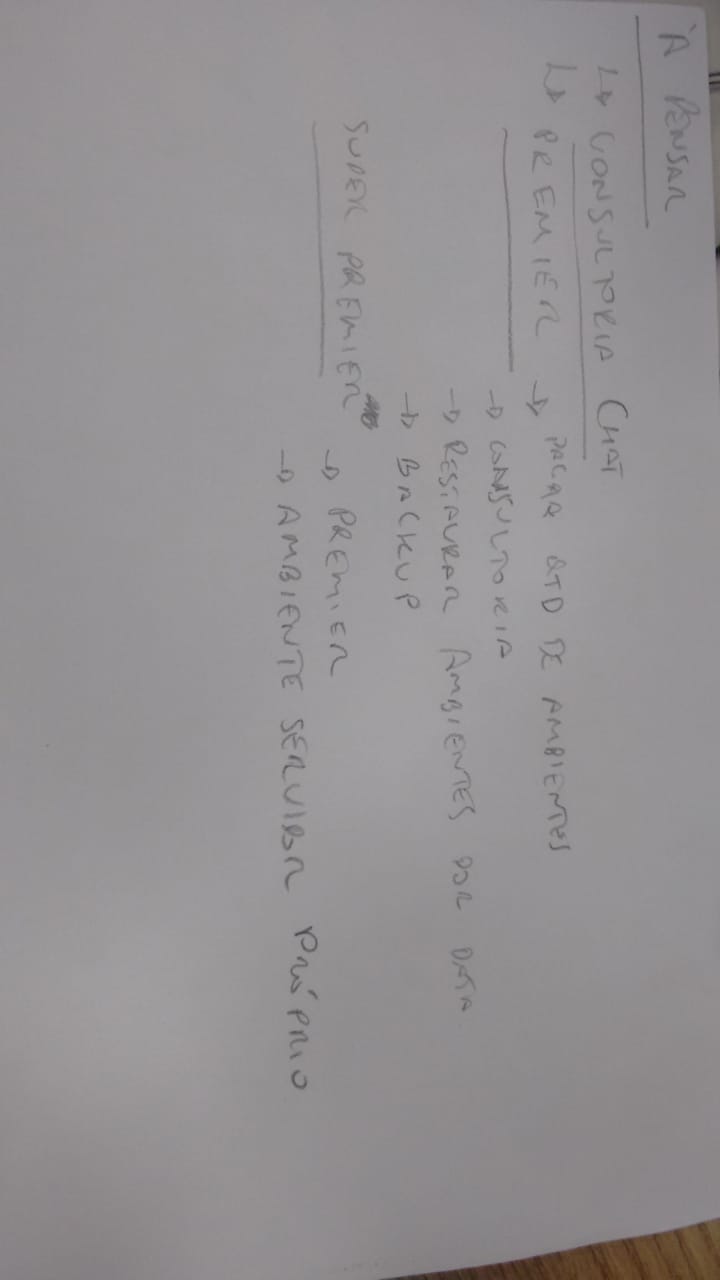 À PENSAR
↳ CONSULTORIA CHAT
↳ PREMIER → PAGAR QTD DE AMBIENTES
→ CONSULTORIA
→ RESTAURAR AMBIENTES POR DATA
→ BACKUP
SUPER PREMIER
→ PREMIER
→ AMBIENTE SERVIDOR PRÓPRIO